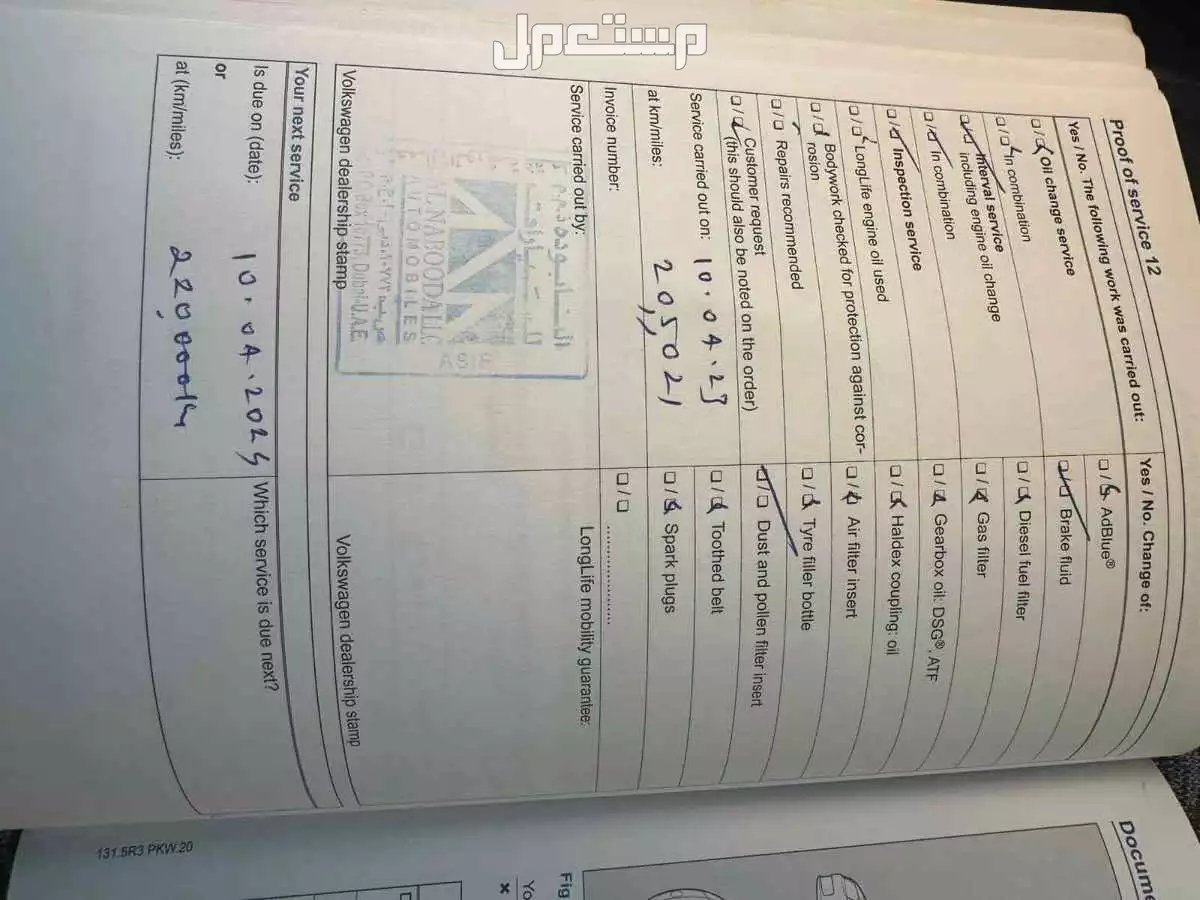 مستعمل
Proof of service 12
Yes / No. The following work was carried out:
Oil change service
In combination
Interval service
including engine oil change
In combination
Inspection service
LongLife engine oil used
Bodywork checked for protection against cor-
rosion
Repairs recommended
Customer request
(this should also be noted on the order)
Service carried out on: 10.04.23
at km/miles: 205,021
Invoice number:
Service carried out by:
AL NABOODA LLC
AUTOMOBILES
P.O.Box 10773, Dubai-U.A.E.
Volkswagen dealership stamp
Yes / No. Change of:
AdBlue®
Brake fluid
Diesel fuel filter
Gas filter
Gearbox oil: DSG®, ATF
Haldex coupling: oil
Air filter insert
Tyre filler bottle
Dust and pollen filter insert
Toothed belt
Spark plugs
LongLife mobility guarantee:
Volkswagen dealership stamp
Your next service
Is due on (date): 10.04.2024
or
at (km/miles):
Which service is due next?
131.5R3.PKW.20
Docume
Fig
Yo